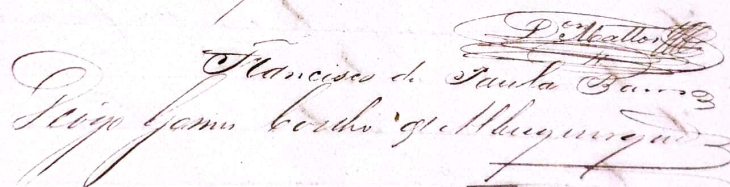 Dor Mattos
Francisco de Paula Barros
Diogo Gomes Coelho d'Albuquerque